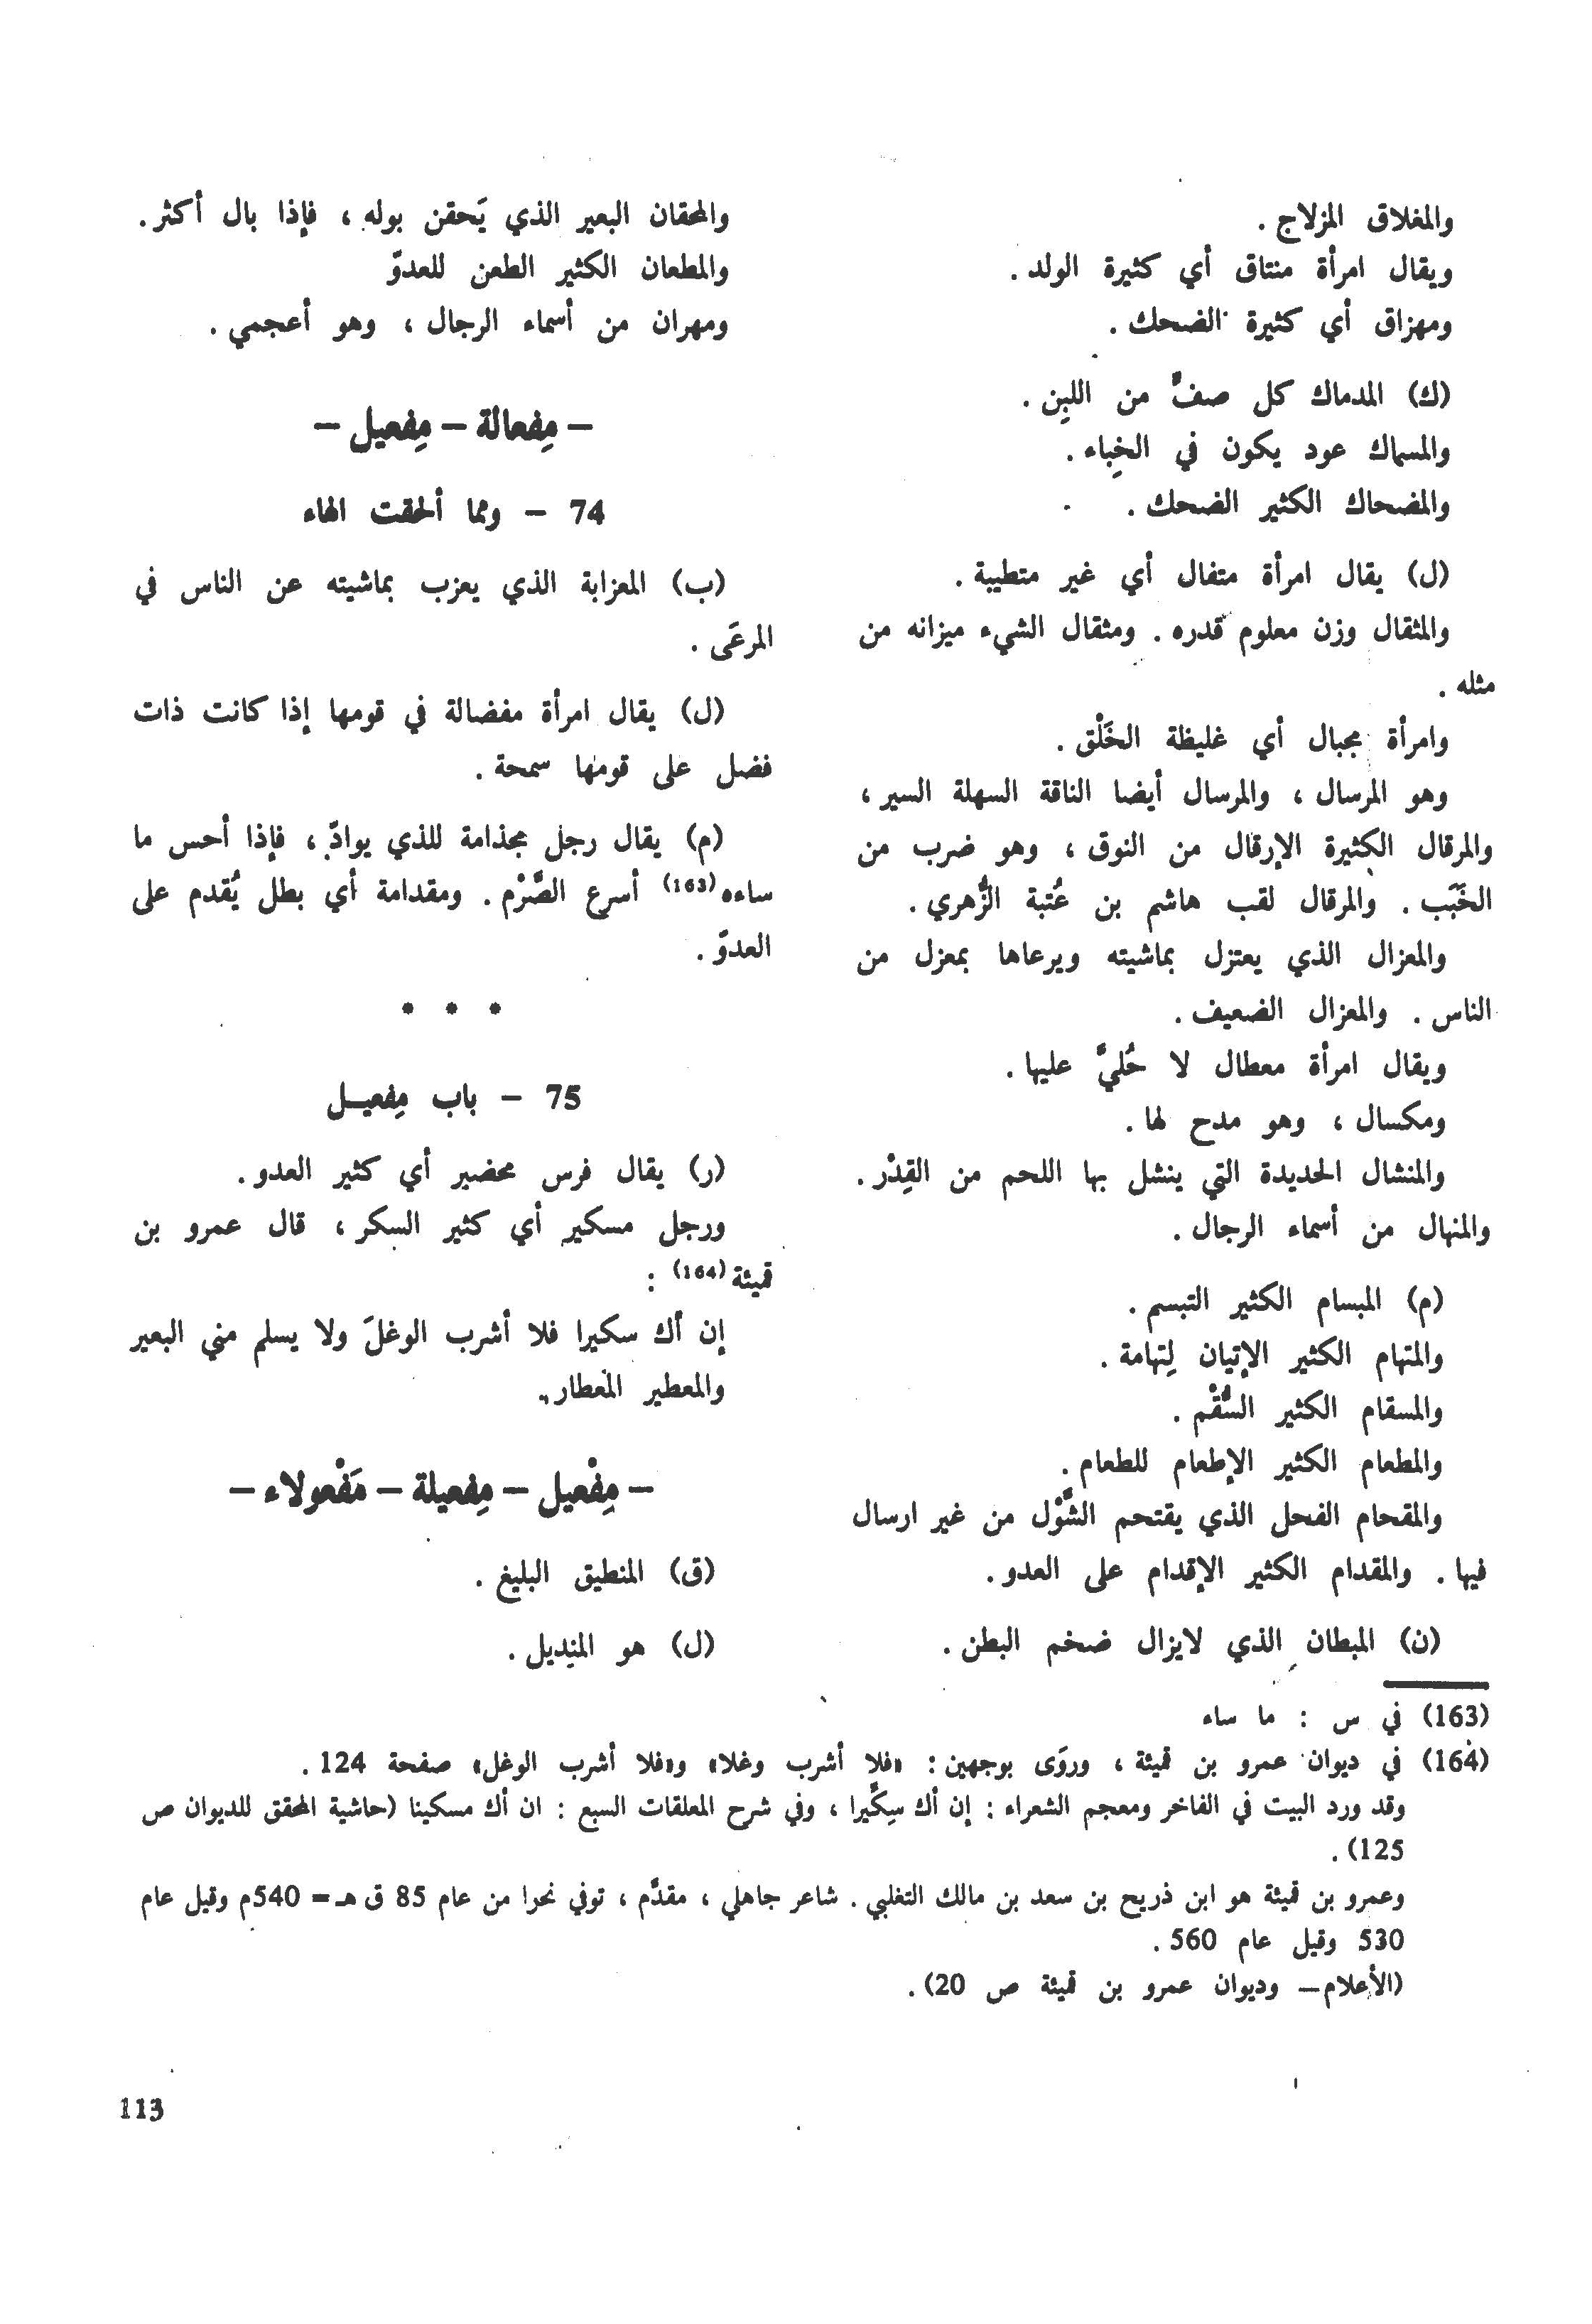 والمغلاق المزلاج .
ويقال امرأة منتاق أي كثيرة الولد .
ومهزاق أي كثيرة الضحك .
(ك) المدماك كل صفٍّ من اللبِن .
والمسماك عود يكون في الخِباء .
والمضحاك الكثير الضحك .
(ل) يقال امرأة متفال أي غير متطيبة .
والمثقال وزن معلوم قدره . ومثقال الشيء ميزانه من
مثله .
وامرأة مجبال أي غليظة الخَلْق .
وهو المرسال ، والمرسال أيضا الناقة السهلة السير ،
والمرقال الكثيرة الإرقال من النوق ، وهو ضرب من
الخَبَب . والمرقال لقب هاشم بن عُتبة الزُّهري .
والمعزال الذي يعتزل بماشيته ويرعاها بمعزل من
الناس . والمعزال الضعيف .
ويقال امرأة معطال لا حُليَّ عليها .
ومكسال ، وهو مدح لها .
والمنشال الحديدة التي ينشل بها اللحم من القِدْر .
والمنهال من أسماء الرجال .
(م) المبسام الكثير التبسم .
والمتهام الكثير الإتيان لِتهامة .
والمسقام الكثير السُّقْم .
والمطعام الكثير الإطعام للطعام .
والمقحام الفحل الذي يقتحم الشَّوْل من غير ارسال
فيها . والمقدام الكثير الإقدام على العدو .
(ن) المبطان الذي لايزال ضخم البطن .
والمحقان البعير الذي يَحقن بوله ، فإذا بال أكثر .
والمطعان الكثير الطعن للعدوّ
ومهران من أسماء الرجال ، وهو أعجمي .
– مِفعالة – مِفعيل –
74 – ومما ألحقت الهاء
(ب) المعزابة الذي يعزب بماشيته عن الناس في
المرعَى .
(ل) يقال امرأة مفضالة في قومها إذا كانت ذات
فضل على قومها سمحة .
(م) يقال رجل مجذامة للذي يوادّ ، فإذا أحس ما
ساءه (163) أسرع الصَّرْم . ومقدامة أي بطل يُقدم على
العدوّ .
* * *
75 – باب مِفعيل
(ر) يقال فرس محضير أي كثير العدو .
ورجل مسكير أي كثير السكر ، قال عمرو بن
قميئة (164) :
إن أك سكيرا فلا أشرب الوغلَ ولا يسلم مني البعير
والمعطير المعطار .
– مِفْعيل – مِفعيلة – مَفْعولاء –
(ق) المنطيق البليغ .
(ل) هو المنديل .
(163) في س : ما ساء
(164) في ديوان عمرو بن قميئة ، وروَى بوجهين : «فلا أشرب وغلا» و«فلا أشرب الوغل» صفحة 124 .
وقد ورد البيت في الفاخر ومعجم الشعراء : إن أك سِكِّيرا ، وفي شرح المعلقات السبع : ان أك مسكينا (حاشية المحقق للديوان ص
125) .
وعمرو بن قميئة هو ابن ذريح بن سعد بن مالك التغلبي . شاعر جاهلي ، مقدَّم ، توفي نحرا من عام 85 ق هـ = 540م وقيل عام
530 وقيل عام 560 .
(الأعلام – وديوان عمرو بن قميئة ص 20) .
113